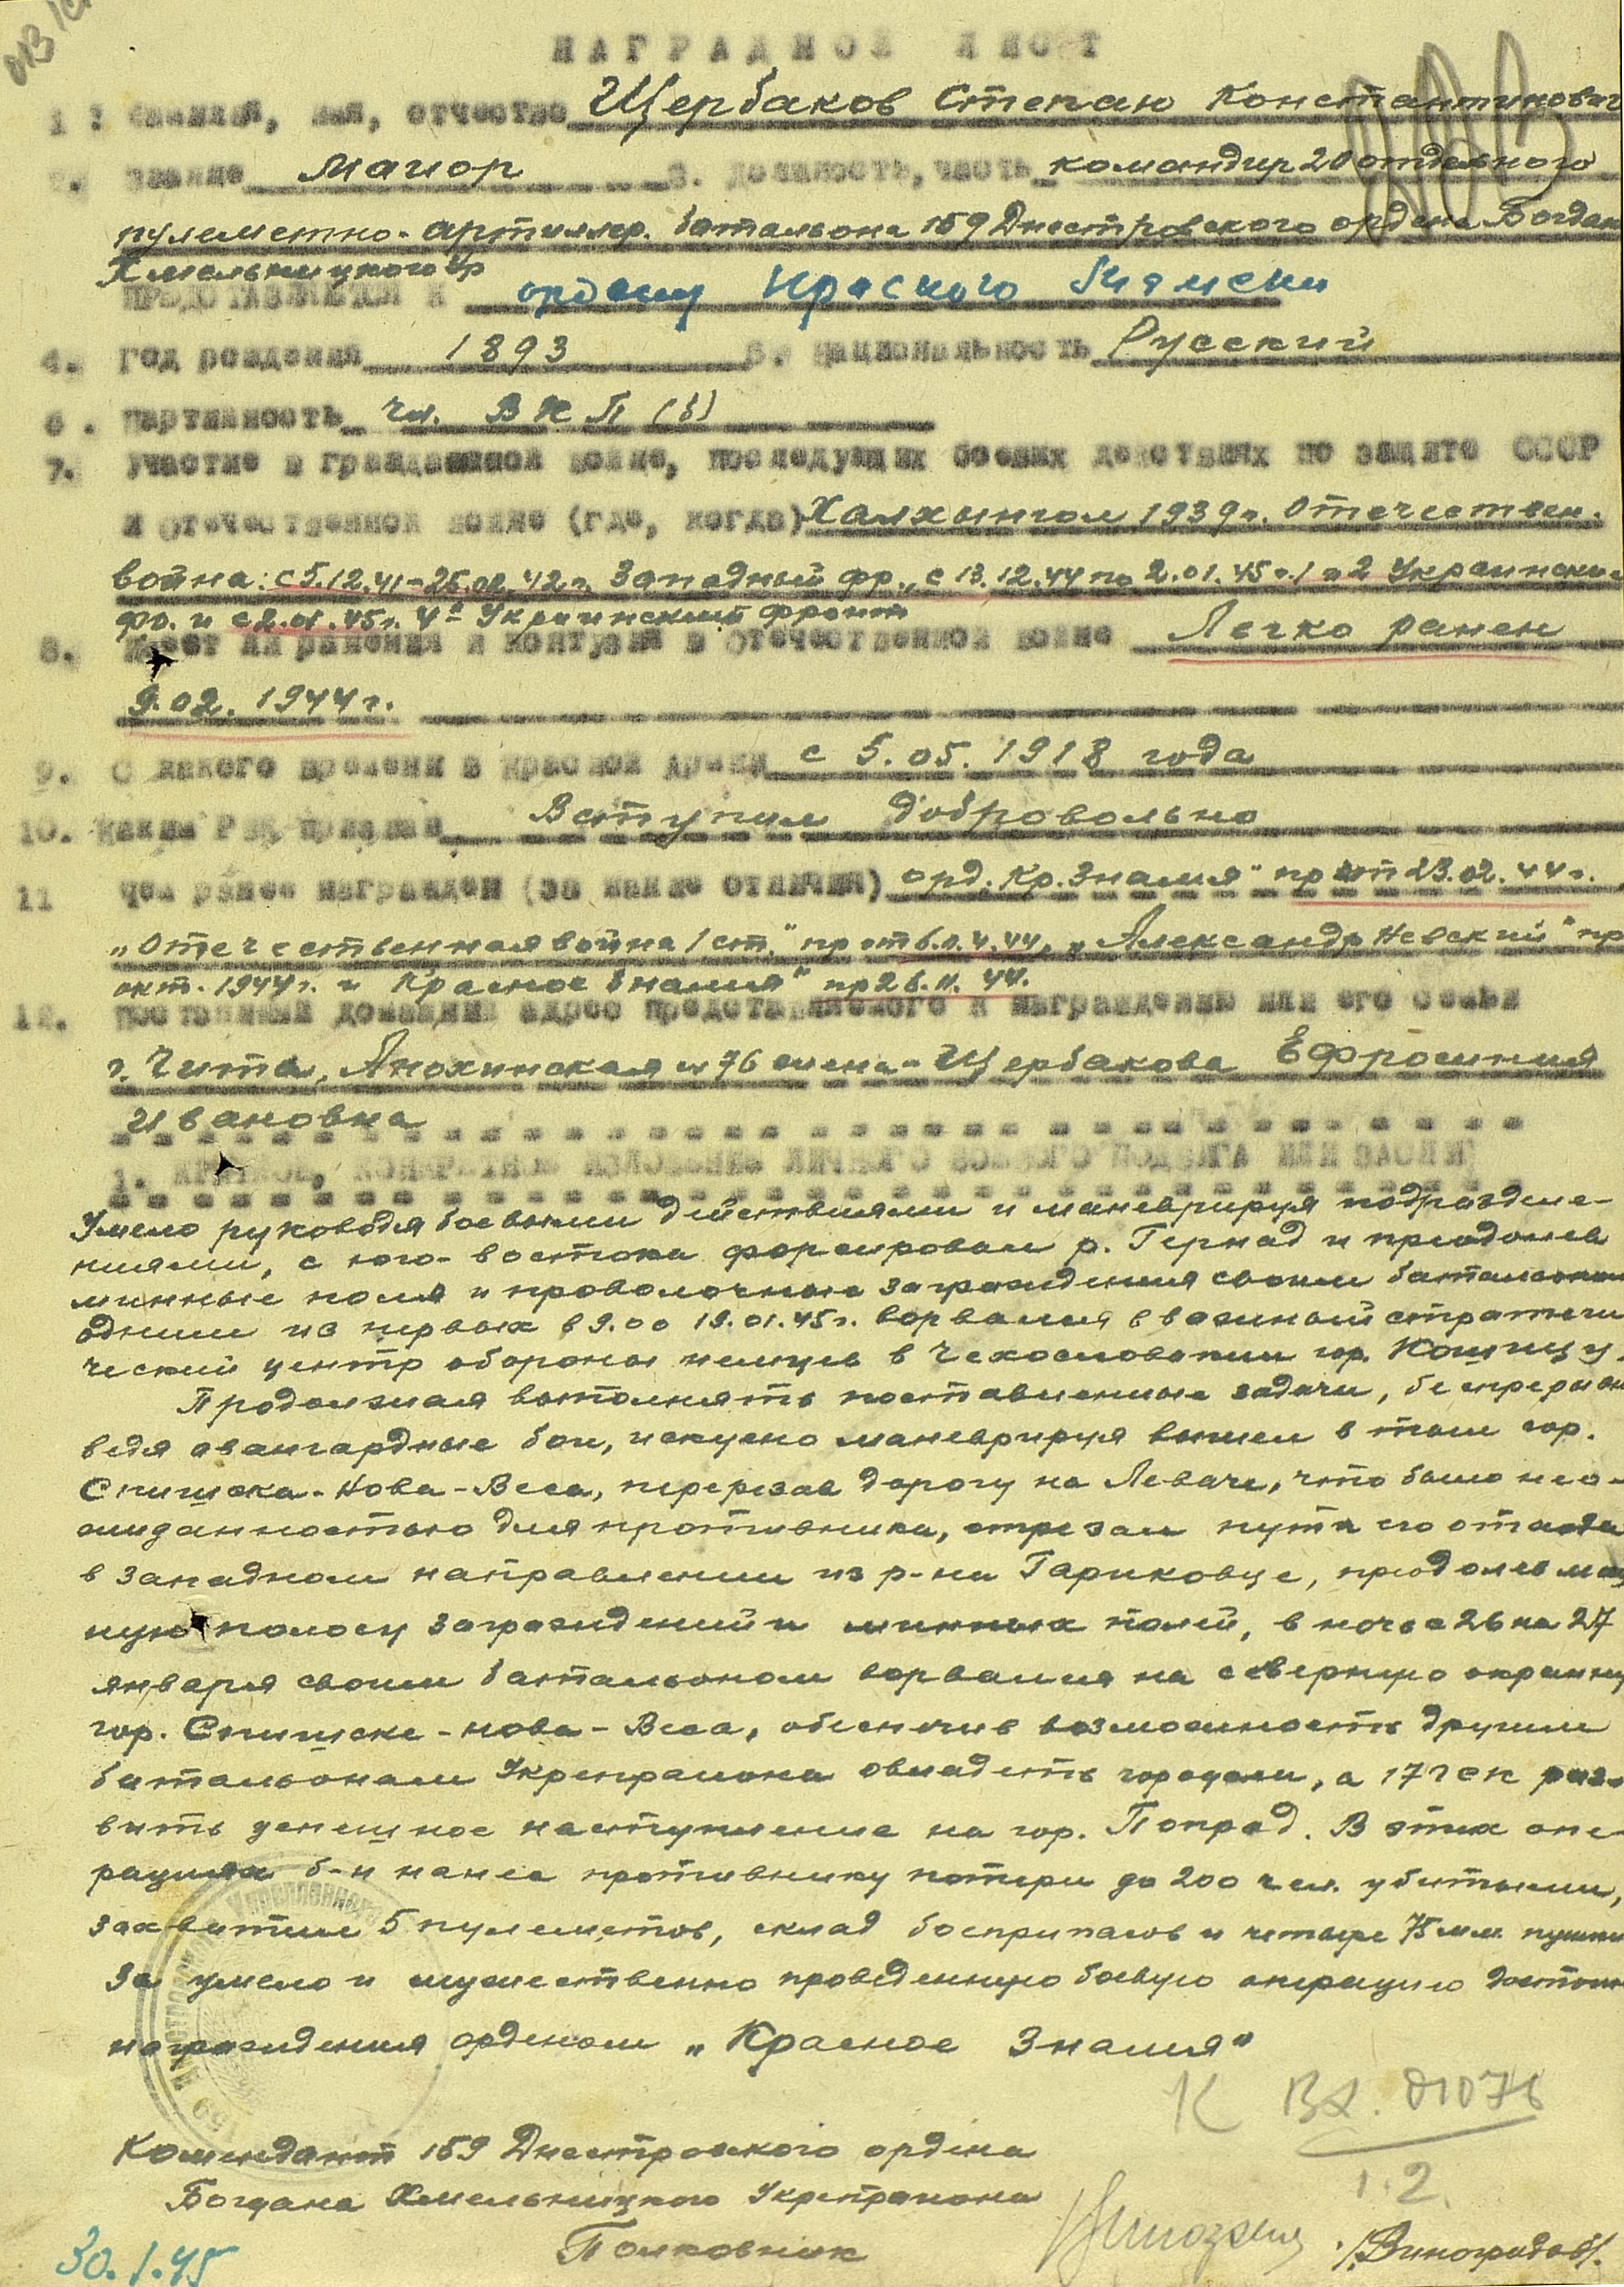 НАГРАДНОЙ ЛИСТ
1. Фамилия, имя, отчество Щербаков Степан Константинович
2. Звание Майор 3. Должность, часть командир 20 отдельного
пулеметно-артиллер. батальона 159 Днестровского ордена Богдана
Хмельницкого Ур
ПРЕДСТАВЛЯЕТСЯ К ордену Красного Знамени
4. Год рождения 1893 5. Национальность Русский
6. Партийность чл. ВКП(б)
7. Участие в гражданской войне, последующих боевых действиях по защите СССР
и отечественной войне (где, когда) Халхынгол 1939г. Отечествен.
война: с 5.12.41-25.02.42г. Западный фр., с 13.12.44 по 2.01.45г. 2 Украинский
фр. и с 2.01.45г. 4й Украинский фронт
8. Имеет ли ранения и контузии в отечественной войне Легко ранен
9.02.1944г.
9. С какого времени в красной армии с 5.05.1918 года
10. Каким РВК призван Вступил добровольно
11 Чем ранее награжден (за какие отличия) орд. „Кр. Знамя" пр от 23.02.44г.
„Отечественная война 1 ст." пр от 4.44, „Александр Невский" пр
окт. 1944г. и Красное Знамя" пр 26.11.44.
12. Постоянный домашний адрес представляемого к награждению или его семьи
г. Чита, Анохинская № 76 жена - Щербакова Ефросиния
Ивановна
1. КРАТКОЕ, КОНКРЕТНОЕ ИЗЛОЖЕНИЕ ЛИЧНОГО БОЕВОГО ПОДВИГА ИЛИ ЗАСЛУГ
Умело руководя боевыми действиями и маневрируя подразделе-
ниями, с юго-востока форсировал р. Гернад и преодолев
минные поля и проволочные заграждения своим батальоном
одним из первых в 9.00 19.01.45г. ворвался в важный стратеги
ческий центр обороны немцев в Чехословакии гор. Кошицу.
Продолжая выполнять поставленные задачи, беспрерывно
ведя авангардные бои, искусно маневрируя вышел в тыл гор.
Спишска-Нова-Веса, перерезав дорогу на Леваче, что было нео-
жиданностью для противника, отрезал пути его отхода
в западном направлении из р-на Гариковце, преодолев мощ
ную полосу заграждений и минных полей, в ночь с 26 на 27
января своим батальоном ворвался на северную окраину
гор. Спишске-нова-Веса, обеспечив возможность другим
батальонам Укрепрайона овладеть городом, а 17 гск раз-
вить успешное наступление на гор. Попрад. В этих опе-
рациях б-н нанес противнику потери до 200 чел. убитыми,
захватил 5 пулеметов, склад боеприпасов и четыре 75 мм. пушки
За умело и мужественно проведенную боевую операцию достоин
награждения орденом „Красное Знамя"
К Вх. 01076
1.2.
Комендант 159 Днестровского ордена
Богдана Хмельницкого Укрепрайона
Полковник /Виноградов/.
30.1.45